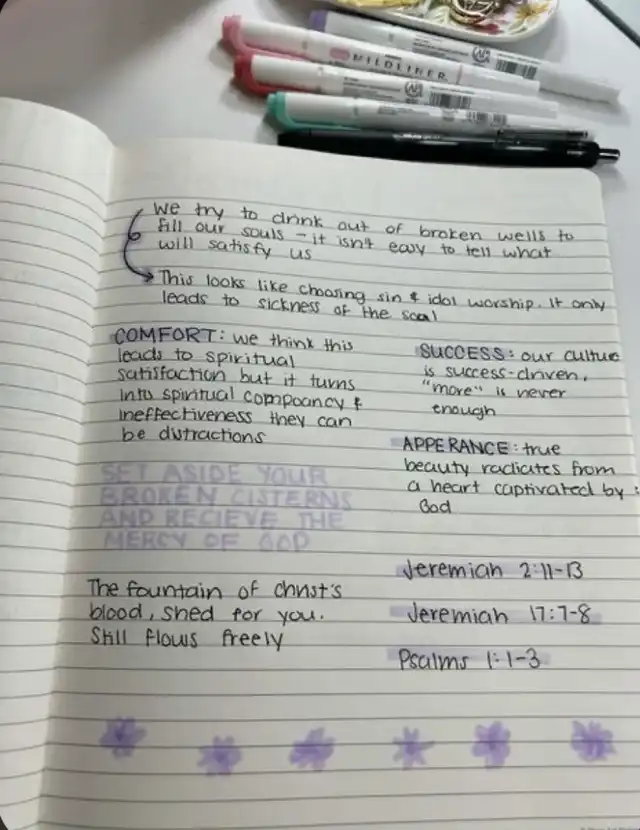 MILDLINER
we try to drink out of broken wells to
fill our souls – it isn't easy to tell what
will satisfy us
This looks like choosing sin & idol worship. It only
leads to sickness of the soal
COMFORT: we think this
leads to spiritual
satisfaction but it turns
into spiritual compoancy &
ineffectiveness they can
be distractions
SUCCESS: our culture
is success-driven.
"more" is never
enough
APPERANCE: true
beauty radiates from
a heart captivated by
God
SET ASIDE YOUR
BROKEN CISTERNS
AND RECIEVE THE
MERCY OF GOD
The fountain of christ's
blood, shed for you.
Still flows freely
Jeremiah 2:11-13
Jeremiah 17:7-8
Psalms 1:1-3